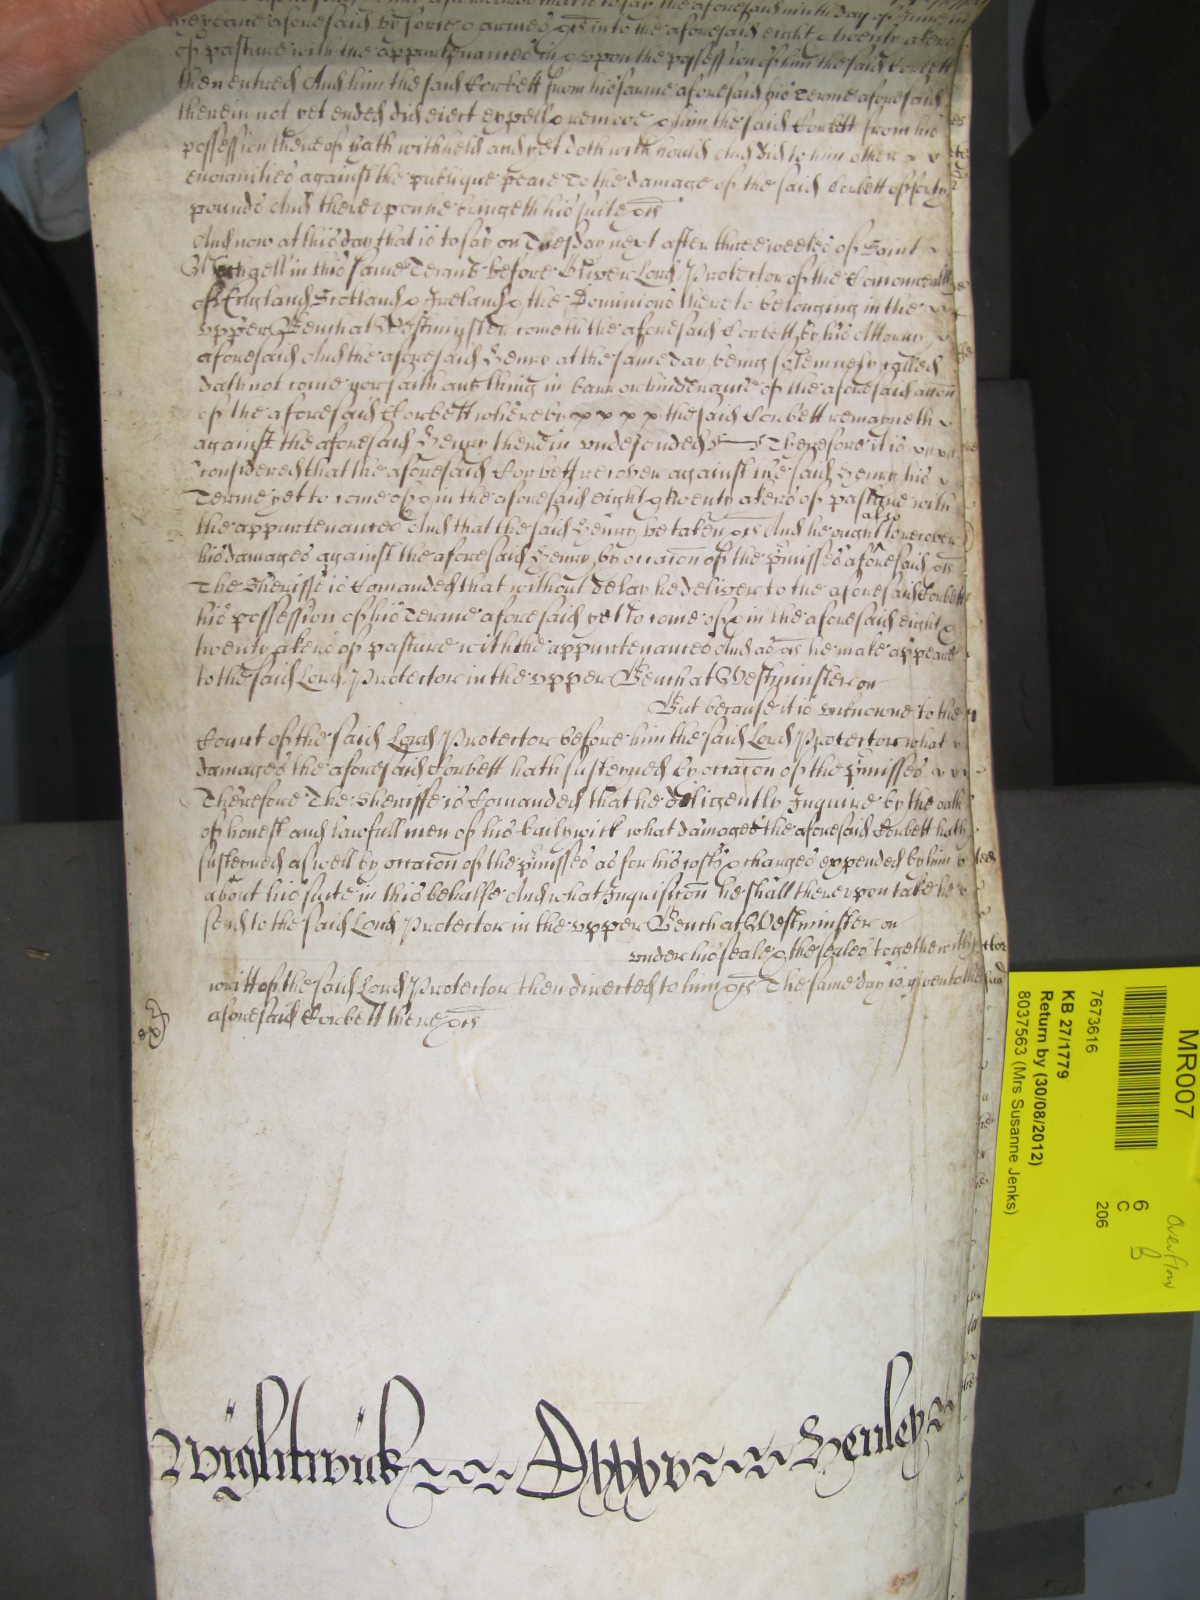 the aforesaid ninth day of June in
yeare aforesaid by force & armes &c into the aforesaid eight & twenty akers
of pasture with the appurtenances in & vpon the possession of him the said Corbett
then entred And him the said Corbett from his farme aforesaid his Terme aforesaid
therein not yet ended did eiect expell & remove & him the said Corbett from his
possession thereof hath withheld and yet doth withhould And did to him other
enormities against the publique peace To the damage of the said Corbett of forty
pounds And therevpon he bringeth his suite &c
And now at this day that is to say on Tuesday next after three weekes of Saint
Michaell in this same Terme before Oliver Lord Protector of the Comonwealth
of England Scotland & Ireland & the Dominions thereto belonging in the
vpper Bench at Westminster cometh the aforesaid Corbett by his Attorny
aforesaid And the aforesaid Henry at the same day being solemnely called
doth not come nor saith any thing in barr or hinderance of the aforesaid accon
of the aforesaid Corbett whereby the said Corbett remayneth
against the aforesaid Henry therein vndefended Therefore it is
considered that the aforesaid Corbett recover against the said Henry his
Terme yet to come of & in the aforesaid eight & twenty akers of pasture with
the appurtenances And that the said Henry be taken &c And he ought also to recover
his damages against the aforesaid Henry by occacon of the p'misses aforesaid &c
The Sheriffe is Comanded that without delay he deliver to the aforesaid Corbett
his possession of his Terme aforesaid yet to come of & in the aforesaid eight &
twenty akers of pasture with the appurtenances And as &c he make appeare
to the said Lord Protector in the vpper Bench at Westminster on
But because it is vnknowne to the
Court of the said Lord Protector before him the said Lord Protector what
damages the aforesaid Corbett hath susteyned by occacon of the p'misses
Therefore The Sheriffe is Comanded that he diligently Inquire by the oath
of honest and lawfull men of his bailywick what damages the aforesaid Corbett hath
susteyned aswell by occacon of the p'misses as for his costs & charges expended by him
about his suite in this behalfe And what Inquisicon he shall therevpon take he
send to the said Lord Protector in the vpper Bench at Westminster on
vnder his seale & the seales together with
writt of the said Lord Protector then directed to him &c The same day is given to the
aforesaid Corbett there &c
Wightwick Henley
MR007
7673616
KB 27/1779
Return by (30/08/2012)
8037563 (Mrs Susanne Jenks)
6
C
206
Overflow
B